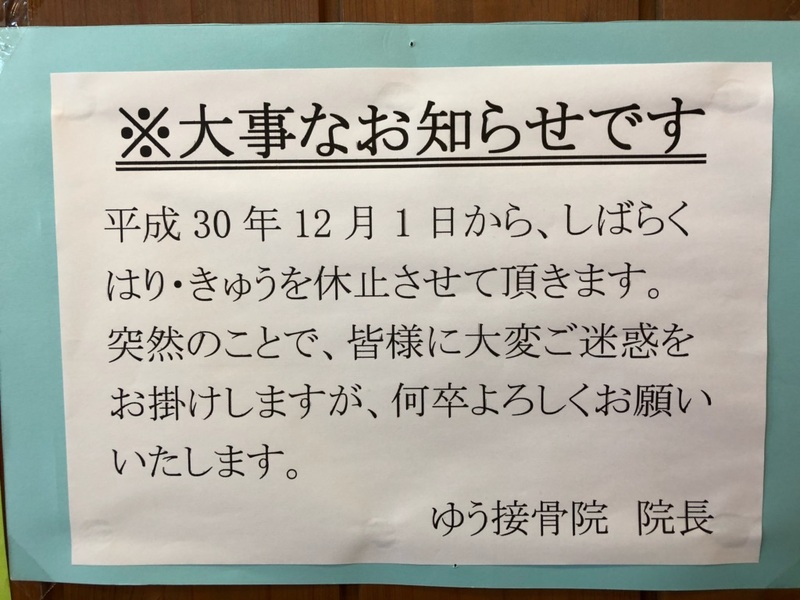 ※大事なお知らせです
平成30年12月1日から、しばらく
はり・きゅうを休止させて頂きます。
突然のことで、皆様に大変ご迷惑を
お掛けしますが、何卒よろしくお願い
いたします。
ゆう接骨院 院長